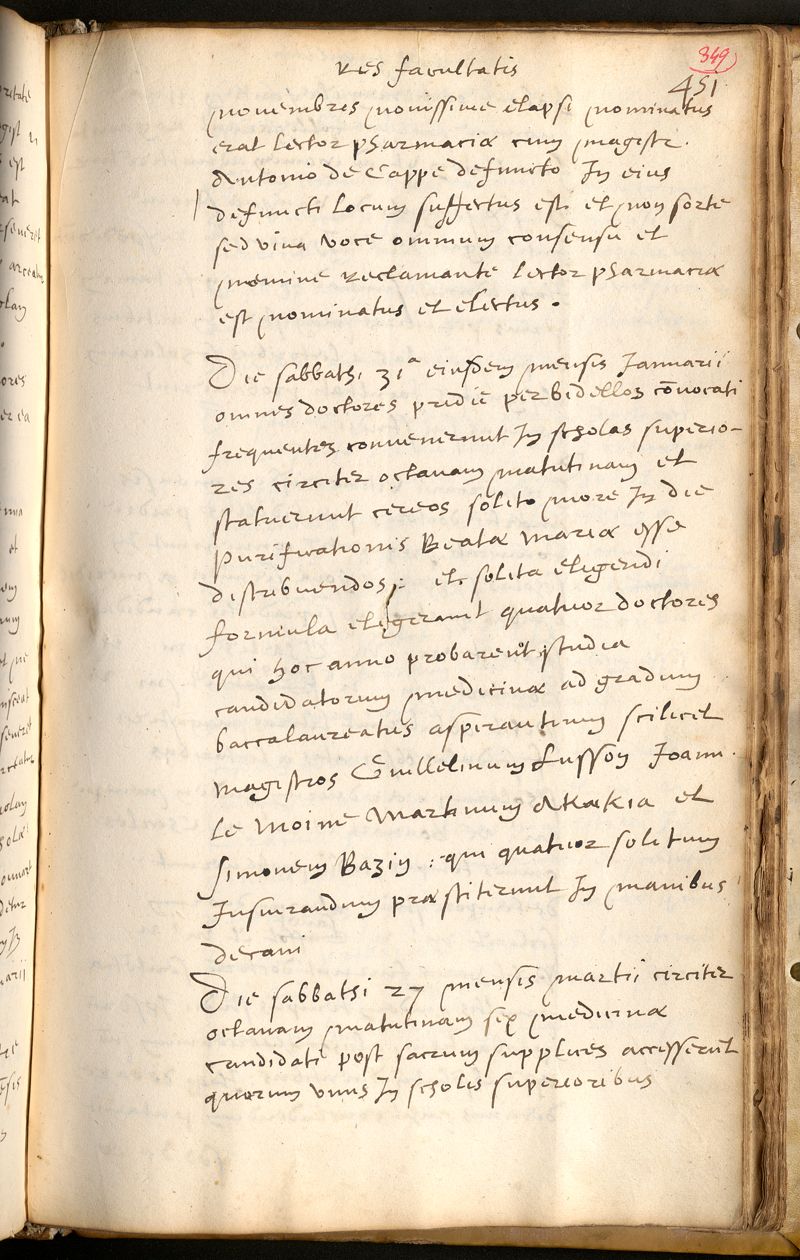 349
Res facultatis
451
novembres novissime elapsi nominatus
erat lector pharmaciæ cum magistr.
Antonio de Cappe defuncto In eius
defuncti locum suffectus est et non sorte
sed viva voce omnium consensu et
nemine reclamante lector pharmaciæ
est nominatus et electus .
Die sabbathi 31ª eiusdem mensis Januarii
omnes doctores pridie per bidellos cōvocati
frequentes convenerunt In scholas superio-
res circiter octavam matutinam et
statuerunt cereos solito more In die
purificationis Beatæ Mariæ esse
distribuendos : et solita eligendi
formula elegerunt quatuor doctores
qui hoc anno probarent studia
candidatorum medicinæ ad gradum
baccalaureatus aspirantium scilicet
magistros Guillelmum Lusson Joann.
Le Moine Martinum Akakia et
Simonem Bazin : qui quatuor solitum
Jusiurandum præstiterunt In manibus
decani
Die sabbathi 27 mensis martii circiter
octavam matutinam sex medicinæ
candidati post sacrum supplices accesserūt
quorum unus In scholis superioribus